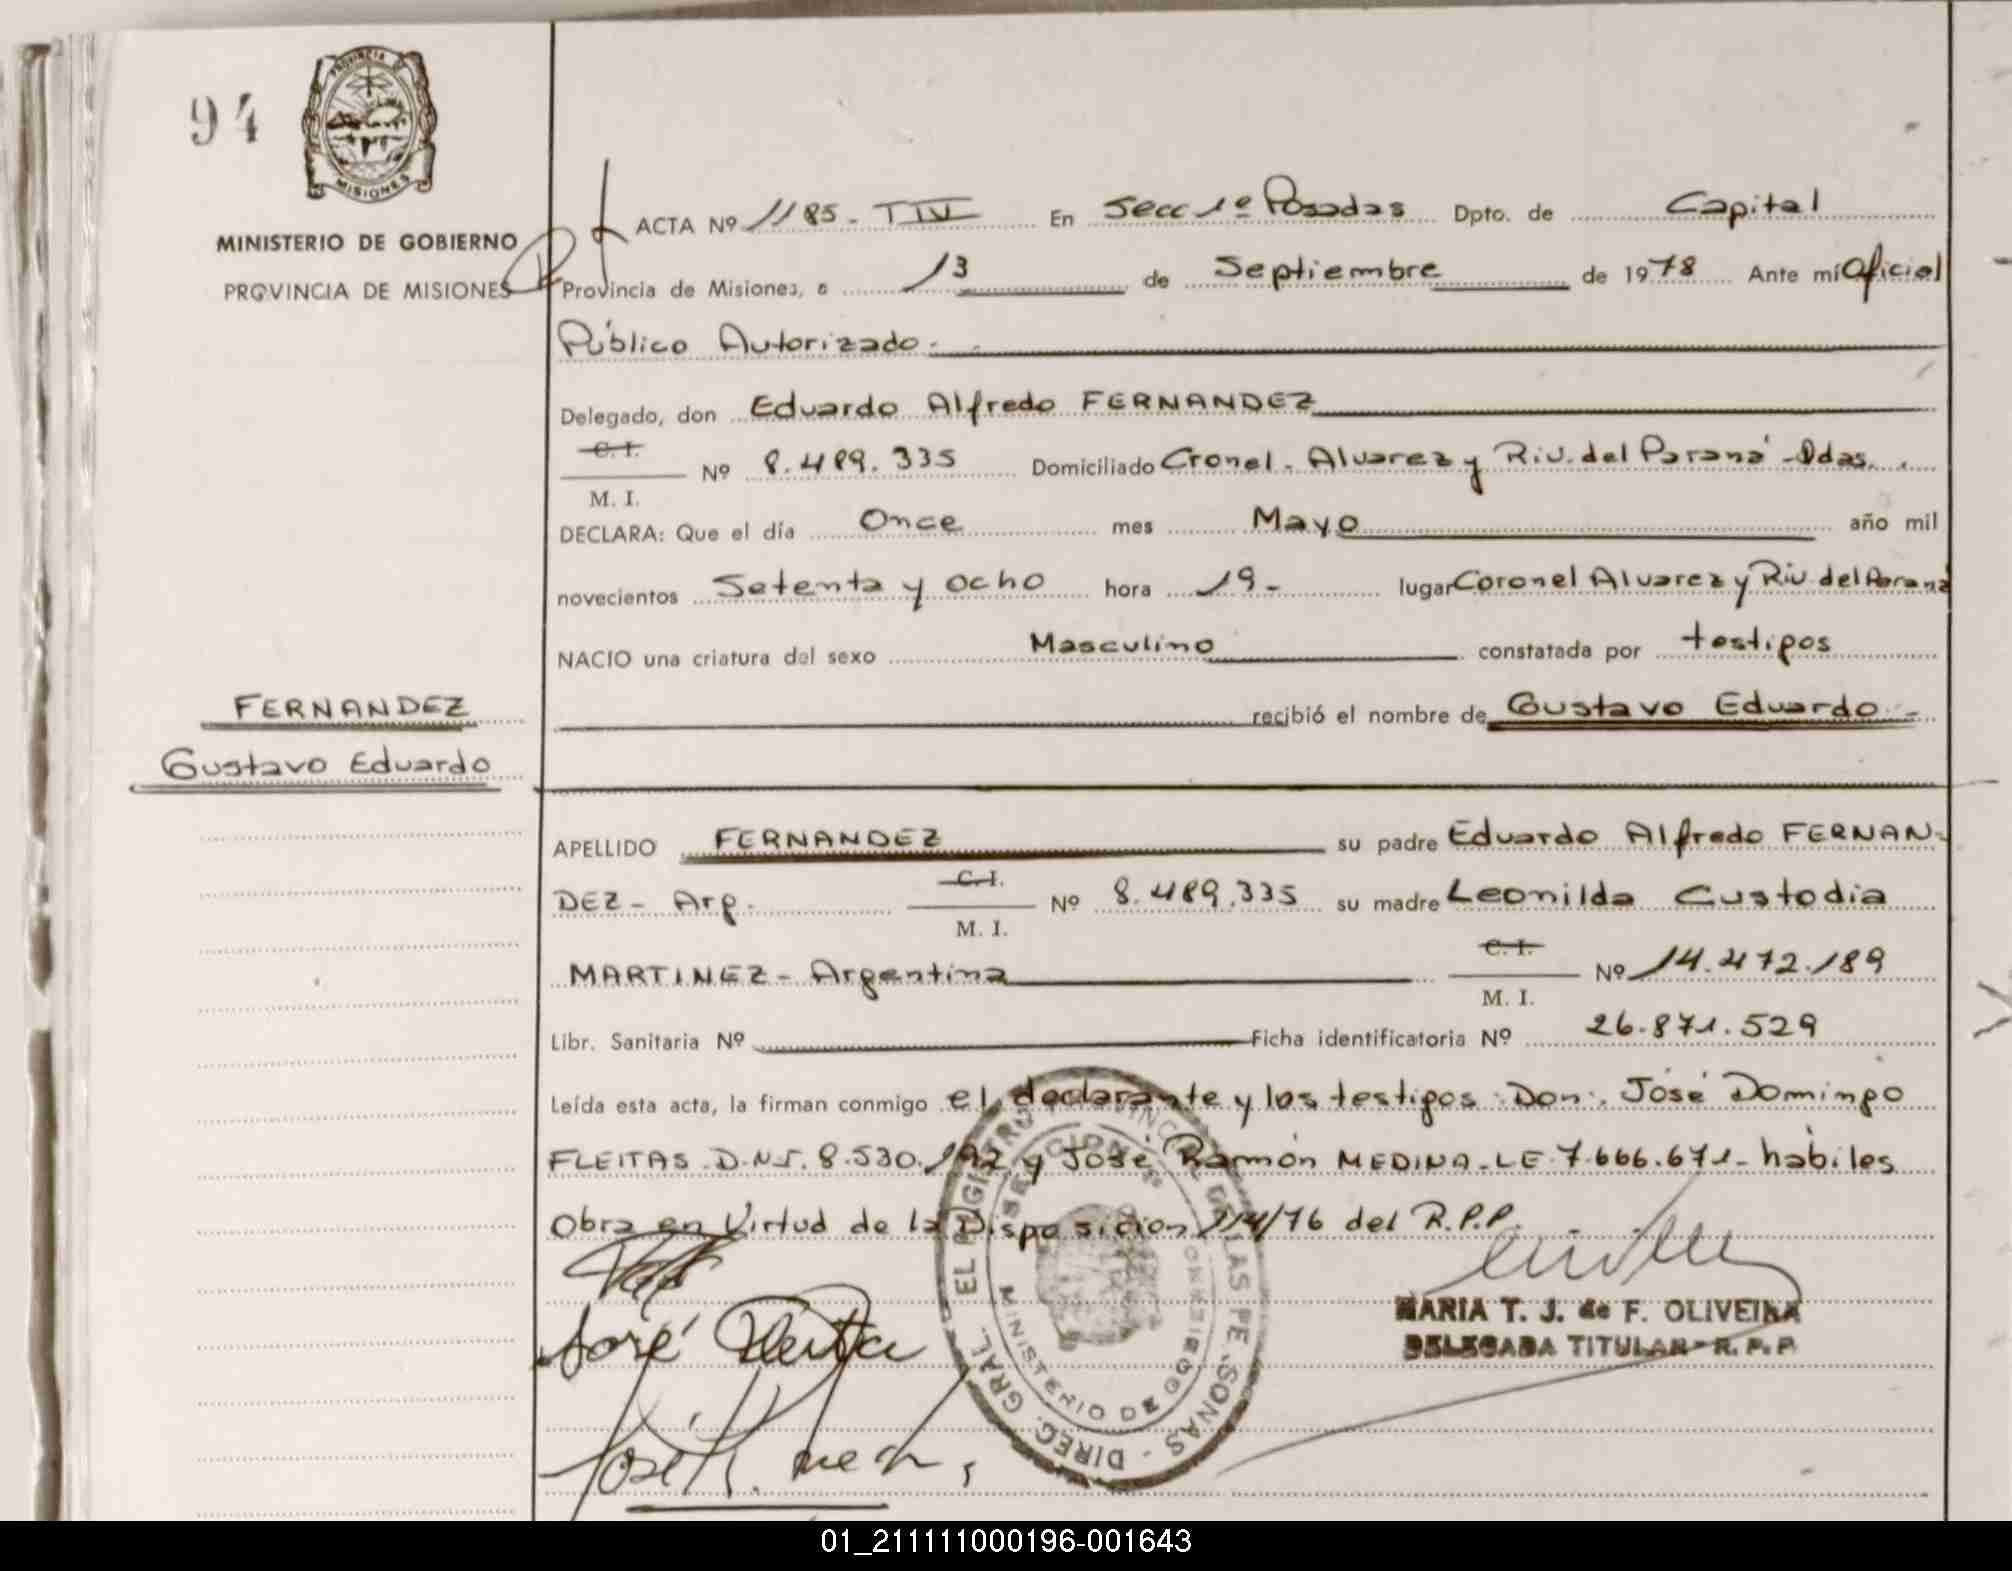 94
PROVINCIA DE
MISIONES
MINISTERIO DE GOBIERNO
PROVINCIA DE MISIONES
ACTA Nº 1185 - T IV En Secc 1º Posadas Dpto. de Capital
Provincia de Misiones, a 13 de Septiembre de 1978 Ante mí Oficial
Público Autorizado.
Delegado, don Eduardo Alfredo FERNANDEZ
C. I.
M. I. Nº 8.489.335 Domiciliado Cronel. Alvarez y Riv. del Paraná - Pdas.
DECLARA: Que el día Once mes Mayo año mil
novecientos Setenta y ocho hora 19 - lugar Coronel Alvarez y Riv. del Paraná
NACIO una criatura del sexo Masculino constatada por testigos
recibió el nombre de Gustavo Eduardo -
FERNANDEZ
Gustavo Eduardo
APELLIDO FERNANDEZ su padre Eduardo Alfredo FERNAN-
DEZ - Arg. C. I. M. I. Nº 8.489.335 su madre Leonilda Custodia
MARTINEZ - Argentina C. I. M. I. Nº 14.472.189
Libr. Sanitaria Nº Ficha identificatoria Nº 26.871.529
Leída esta acta, la firman conmigo el declarante y los testigos Don. José Domingo
FLEITAS D.N.I. 8.530.192 y José Ramón MEDINA - LE 7.666.671 - hábiles
Obra en Virtud de la Disposición 114/76 del R.P.P.
José
José R.
MARIA T. J. de F. OLIVEIRA
DELEGADA TITULAR - R. P. P.
DIREC. GRAL. DE LAS PERSONAS
MINISTERIO DE GOBIERNO
01_211111000196-001643